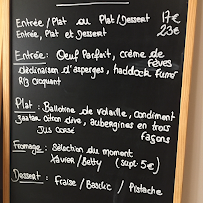 Entrée/Plat ou Plat/Dessert 17€
Entrée, Plat et Dessert 23€
Entrée: Oeuf Parfait, crème de
fèves
Déclinaison d'asperges, haddock fumé
Riz croquant
Plat: Ballotine de volaille, condiment
citron olive, aubergines en trois
Jus corsé façons
Fromage: Sélection du moment
Xavier/Betty (suppl. 5€)
Dessert: Fraise/Basilic/Pistache